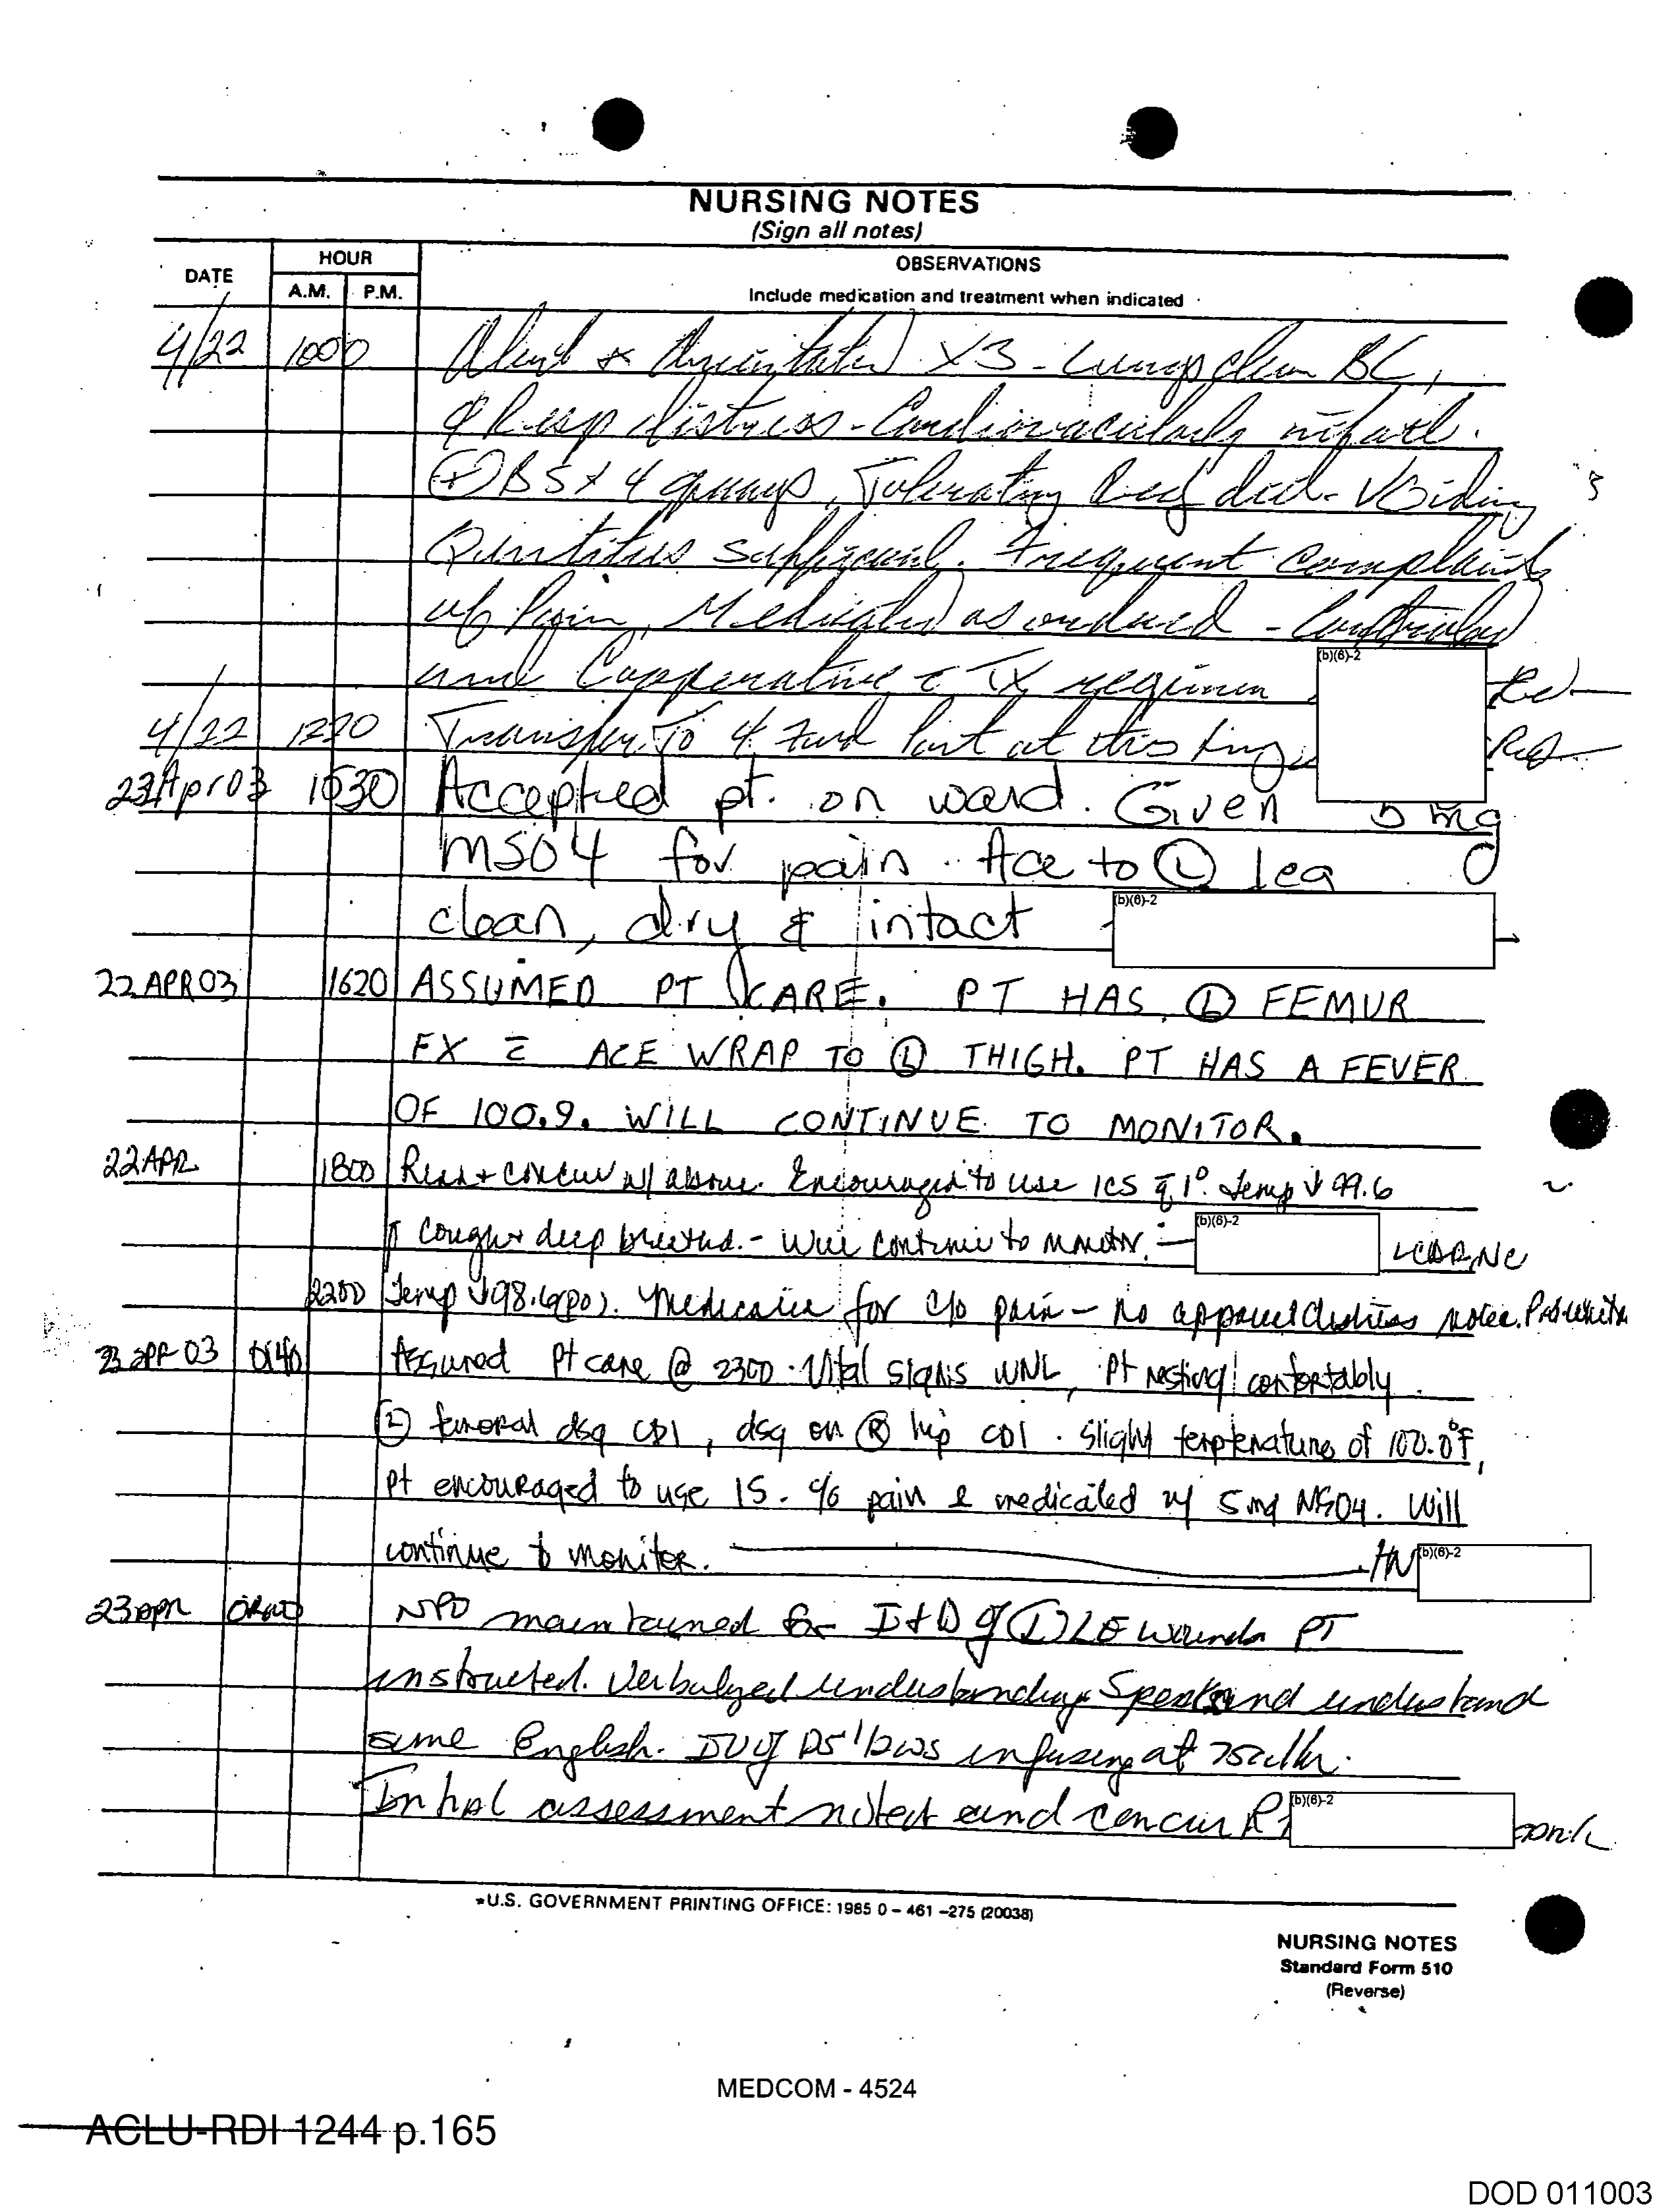 NURSING NOTES
(Sign all notes)
DATE
HOUR
A.M. P.M.
OBSERVATIONS
Include medication and treatment when indicated
4/22 1000 Alert & Orientated X3 - Lungs clear BC,
Resp distress - Cardiovascularly intact.
(+) BS x 4 quads, Tolerating Reg diet - Voiding
Quntities sufficient. Frequent complaints
of Pain, Medicated as ordered - Controlled
and Cooperative c̄ Tx regimen (b)(6)-2
4/22 1220 Transfer To 4 Fwd Port at this time
23 Apr 03 1530 Accepted pt. on ward. Given 5 mg
MSO4 for pain. Ace to Ⓛ leg
clean, dry & intact (b)(6)-2
22 APR 03 1620 ASSUMED PT CARE. PT HAS Ⓛ FEMUR
FX c̄ ACE WRAP TO Ⓛ THIGH. PT HAS A FEVER
OF 100.9. WILL CONTINUE TO MONITOR.
22 APR 1800 Read + concur w/ above. Encouraged to use ICS q 1°. Temp ↓ 99.6
↑ cough + deep breathed. - Will continue to monitor. (b)(6)-2 LCDR, NC
2200 Temp ↓ 98.6 (po). Medicated for c/o pain - no apparent distress noted.
23 apr 03 0140 Assured Pt care @ 2300. Vital signs WNL, Pt resting comfortably.
Ⓛ femoral dsg CDI, dsg on Ⓡ hip CDI. Slight temperature of 100.0°F,
pt encouraged to use IS. c/o pain & medicated w/ 5 mg MSO4. Will
continue to monitor. HN (b)(6)-2
23 apr NPO maintained for I+D of Ⓛ LE wounds PT
instructed. Verbalyzed understanding. Speaks and understand
some English. IV of D5 1/2 NS infusing at 75cc/hr.
Inital assessment noted and concur (b)(6)-2
*U.S. GOVERNMENT PRINTING OFFICE: 1985 0 – 461 –275 (20038)
NURSING NOTES
Standard Form 510
(Reverse)
MEDCOM - 4524
ACLU-RDI 1244 p.165
DOD 011003